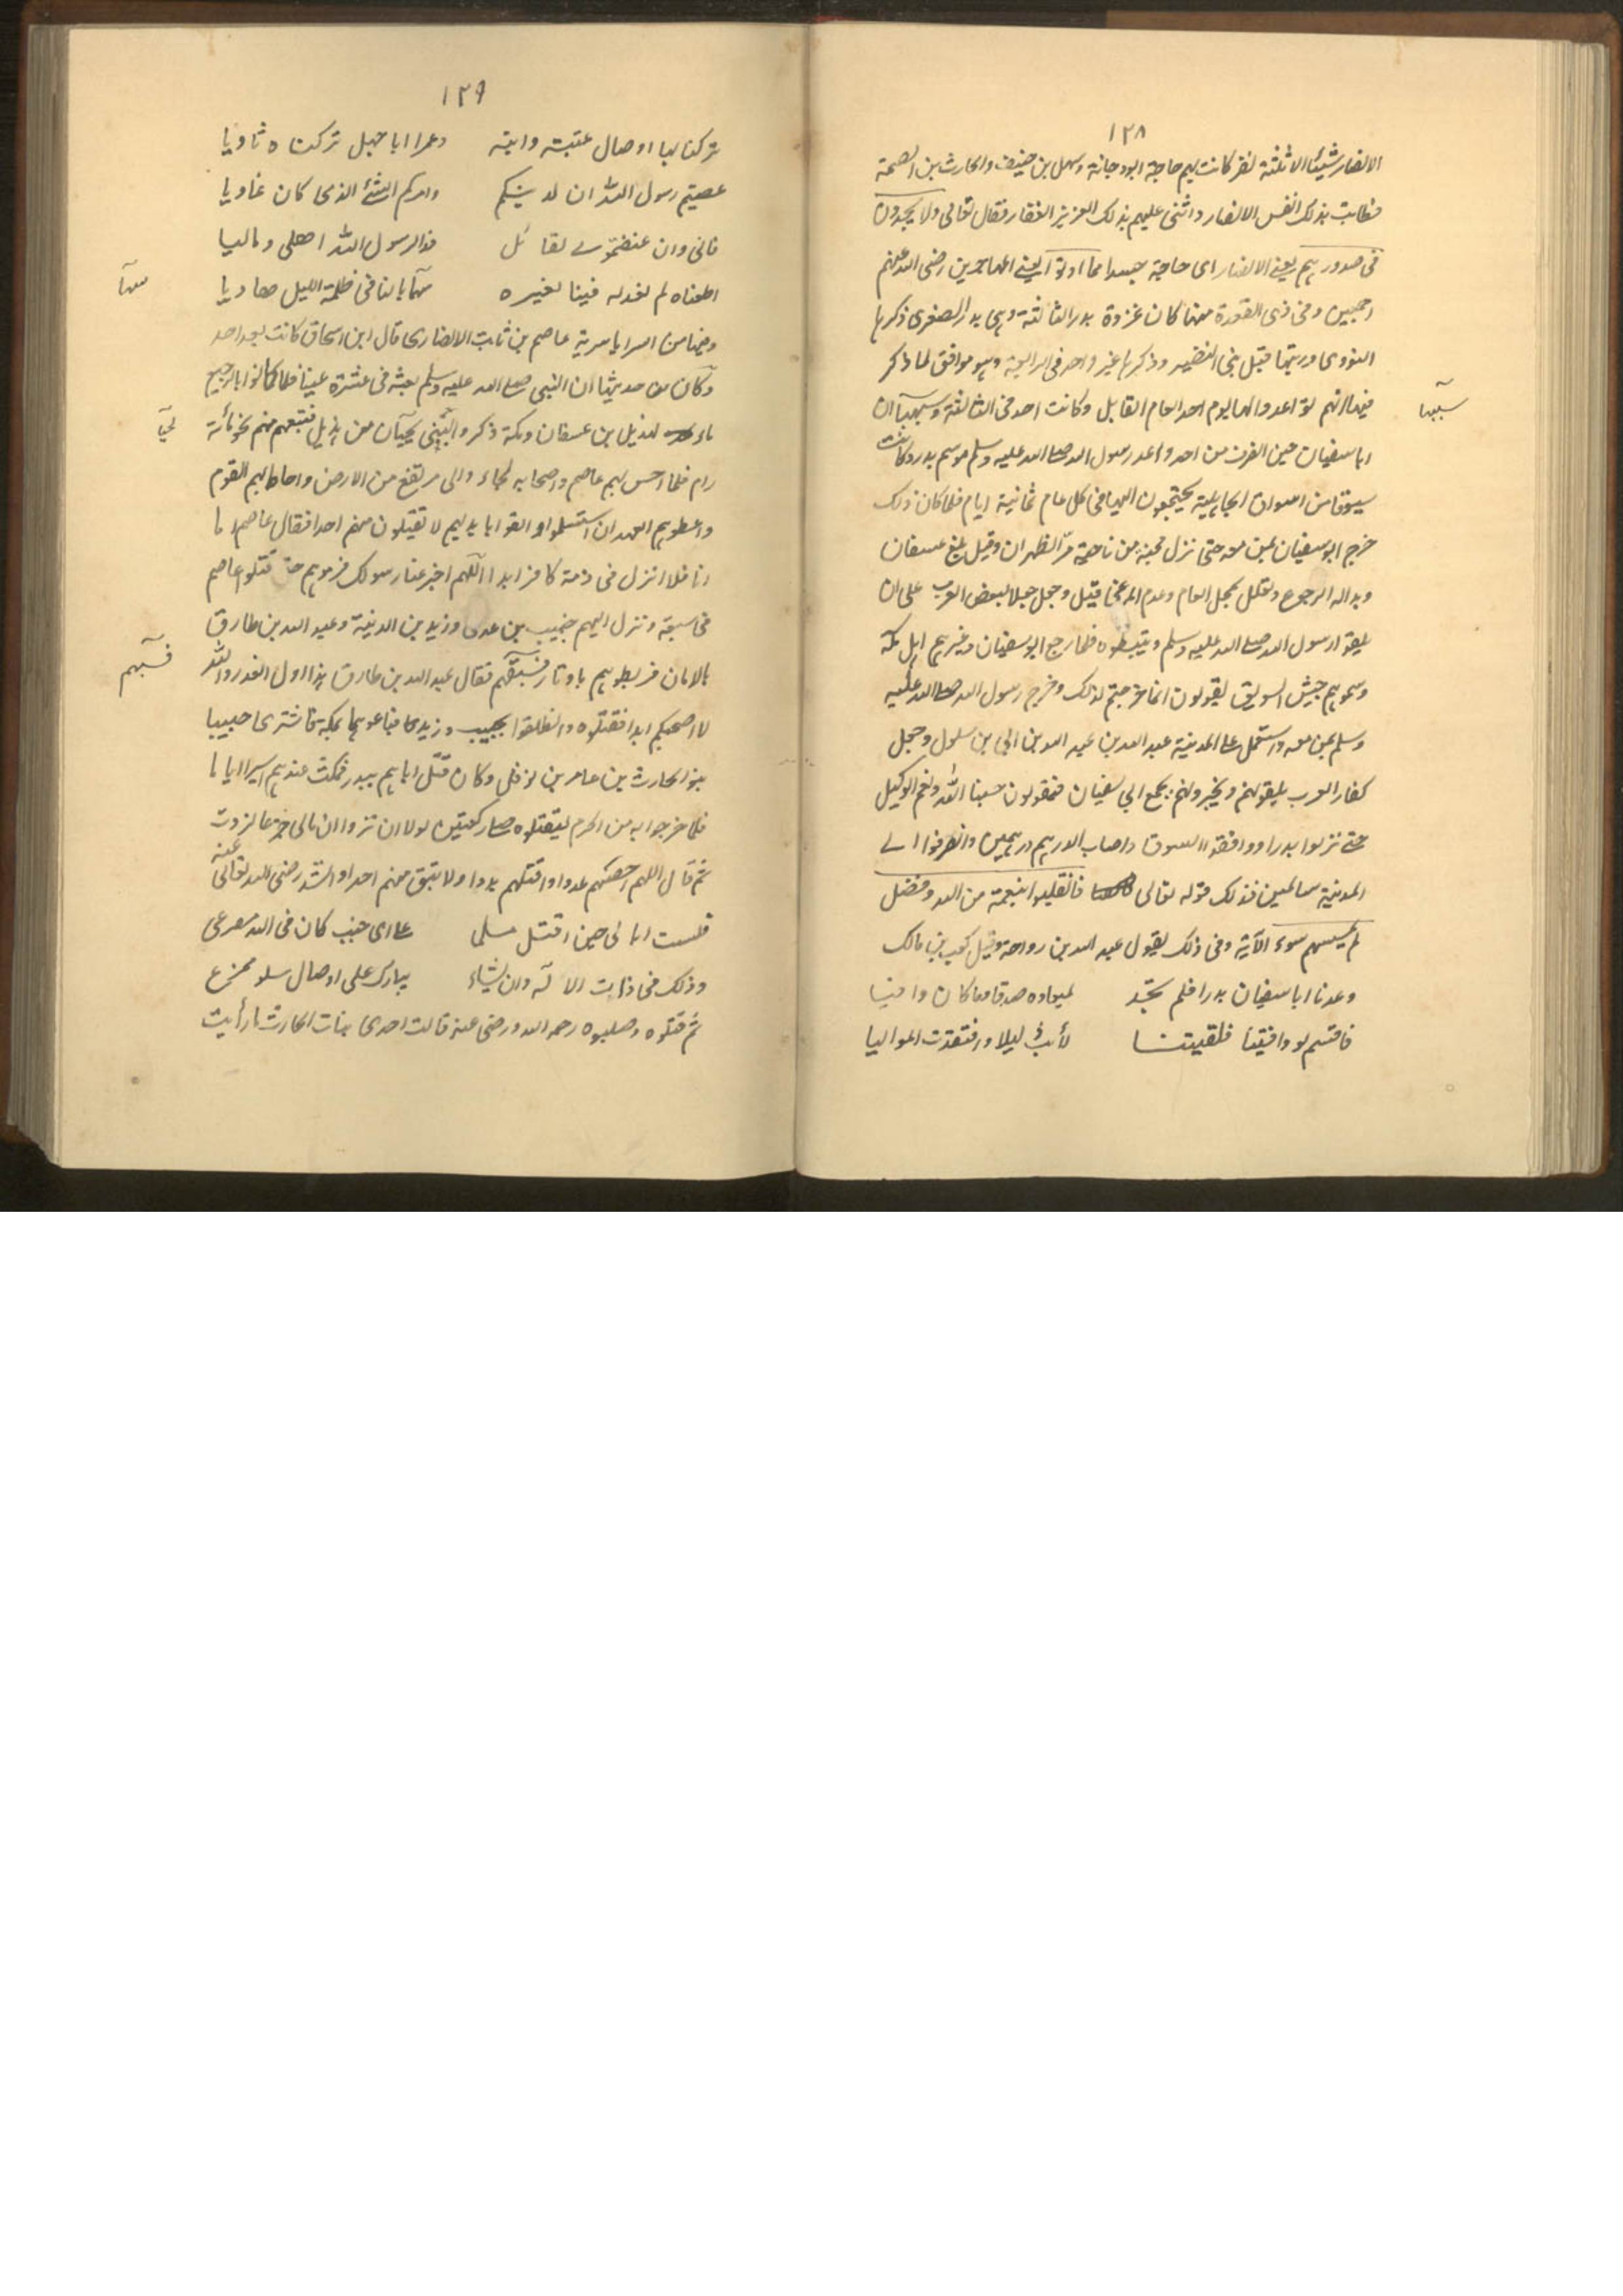 ١٢٨
الانصار شيئا الا ثلثة نفر كانت بهم حاجة ابو دجانة وسهل بن حنيف والحارث بن الصمة
فطابت بذلك انفس الانصار واثنى عليهم بذلك العزيز الغفار فقال تعالى ولا يجدون
فى صدورهم يعنے الانصار اى حاجة حسدا مما اوتوا يعنے المهاجرين رضى الله عنهم
اجمعين وفى ذى القعدة منها كان غزوة بدر الثالثة وهى بدر الصغرى ذكرها
النووى ورتبها قبل بنى النضير وذكرها غير واحد فى الرابعة وهو موافق لما ذكر
فيها انهم تواعدوا لها يوم احد العام القابل وكانت احد فى الثالثة وسببها ان
سببها
ابا سفيان حين انصرف من احد واعد رسول الله صلے الله عليه وسلم موسم بدر وكانت
سوقا من اسواق الجاهلية يجتمعون اليها فى كل عام ثمانية ايام فلما كان ذلك
خرج ابو سفيان بمن معه حتى نزل مجنة من ناحية مر الظهران وقيل بلغ عسفان
وبدا له الرجوع وتعلل بمحل العام وعدم المرعى قيل وجعل جعلا لبعض العرب على ان
يلقوا رسول الله صلے الله عليه وسلم ويثبطوه فلما رجع ابو سفيان وغيرهم اهل مكة
وسموهم جيش السويق يقولون انما خرجتم لذلك وخرج رسول الله صلے الله عليه
وسلم بمن معه واستعمل علے المدينة عبد الله بن عبد الله بن ابى بن سلول وجعل
كفار العرب يلقونهم ويخبرونهم بجمع ابى سفيان فيقولون حسبنا الله ونعم الوكيل
حتے نزلوا بدرا ووافقوا السوق واصاب الدرهم درهمين وانصرفوا الے
المدينة سالمين فذلك قوله تعالى فانقلبوا بنعمة من الله وفضل
لم يمسسهم سوء الآية وفى ذلك يقول عبد الله بن رواحة وقيل كعب بن مالك
وعدنا ابا سفيان بدرا فلم نجد لميعاده صدقا وما كان وافيا
فاقسم لو وافيتنا فلقيتنا لأبت ليلا وافتقدت المواليا
١٢٩
تركنا بها اوصال عتبة وابنه وعمرا ابا جهل تركناه ثاويا
عصيتم رسول الله اف لدينكم وامركم الشئ الذى كان غاويا
فانى وان عنفتمونے لقائل فدا لرسول الله اهلى وماليا
اطعناه لم نعدله فينا بغيره شهابا لنا فى ظلمة الليل هاديا
وفيها من السرايا سرية عاصم بن ثابت الانصارى قال ابن اسحاق كانت بعد احد
وكان من حديثها ان النبى صلے الله عليه وسلم بعثه فى عشرة عينا فلما كانوا بالرجيع
ماء لهذيل بين عسفان ومكة ذكروا لبنى لحيان من هذيل فتبعهم منهم نحو مائة
رام فلما احس بهم عاصم واصحابه لجاءوا الى مرتفع من الارض واحاط بهم القوم
واعطوهم العهد ان استسلموا والقوا بايديهم لا تقتلون منهم احدا فقال عاصم اما
انا فلا انزل فى ذمة كافر ابدا اللهم اخبر عنا رسولك فرموهم حتے قتلوا عاصم
فى سبعة ونزل اليهم خبيب بن عدى وزيد بن الدثنة وعبد الله بن طارق
بالامان فربطوهم باوتار قسيهم فقال عبد الله بن طارق هذا اول الغدر والله
قسيهم
لا اصحبكم ابدا فقتلوه وانطلقوا بخبيب وزيد فباعوهما بمكة فاشترى خبيبا
بنو الحارث بن عامر بن نوفل وكان قتل اباهم ببدر فمكث عندهم اسيرا اياما
فلما خرجوا به من الحرم ليقتلوه صلے ركعتين لولا ان تروا ان مابى جزعا لزدت
ثم قال اللهم احصهم عددا واقتلهم بددا ولا تبق منهم احدا وانشد رضى الله تعالى عنه
فلست ابالى حين اقتل مسلما علے اى جنب كان فى الله مصرعى
وذلك فى ذات الاله وان يشاء يبارك على اوصال شلو ممزع
ثم قتلوه وصلبوه رحمه الله ورضى عنه قالت احدى بنات الحارث ما رأيت